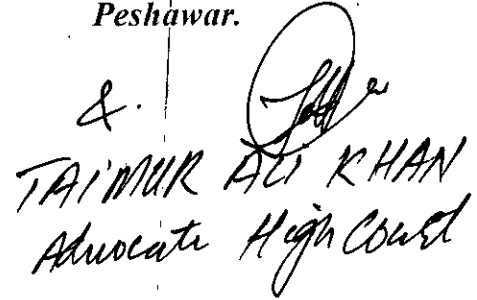 Peshawar.
&.
TAIMUR ALI KHAN
Advocate High Court